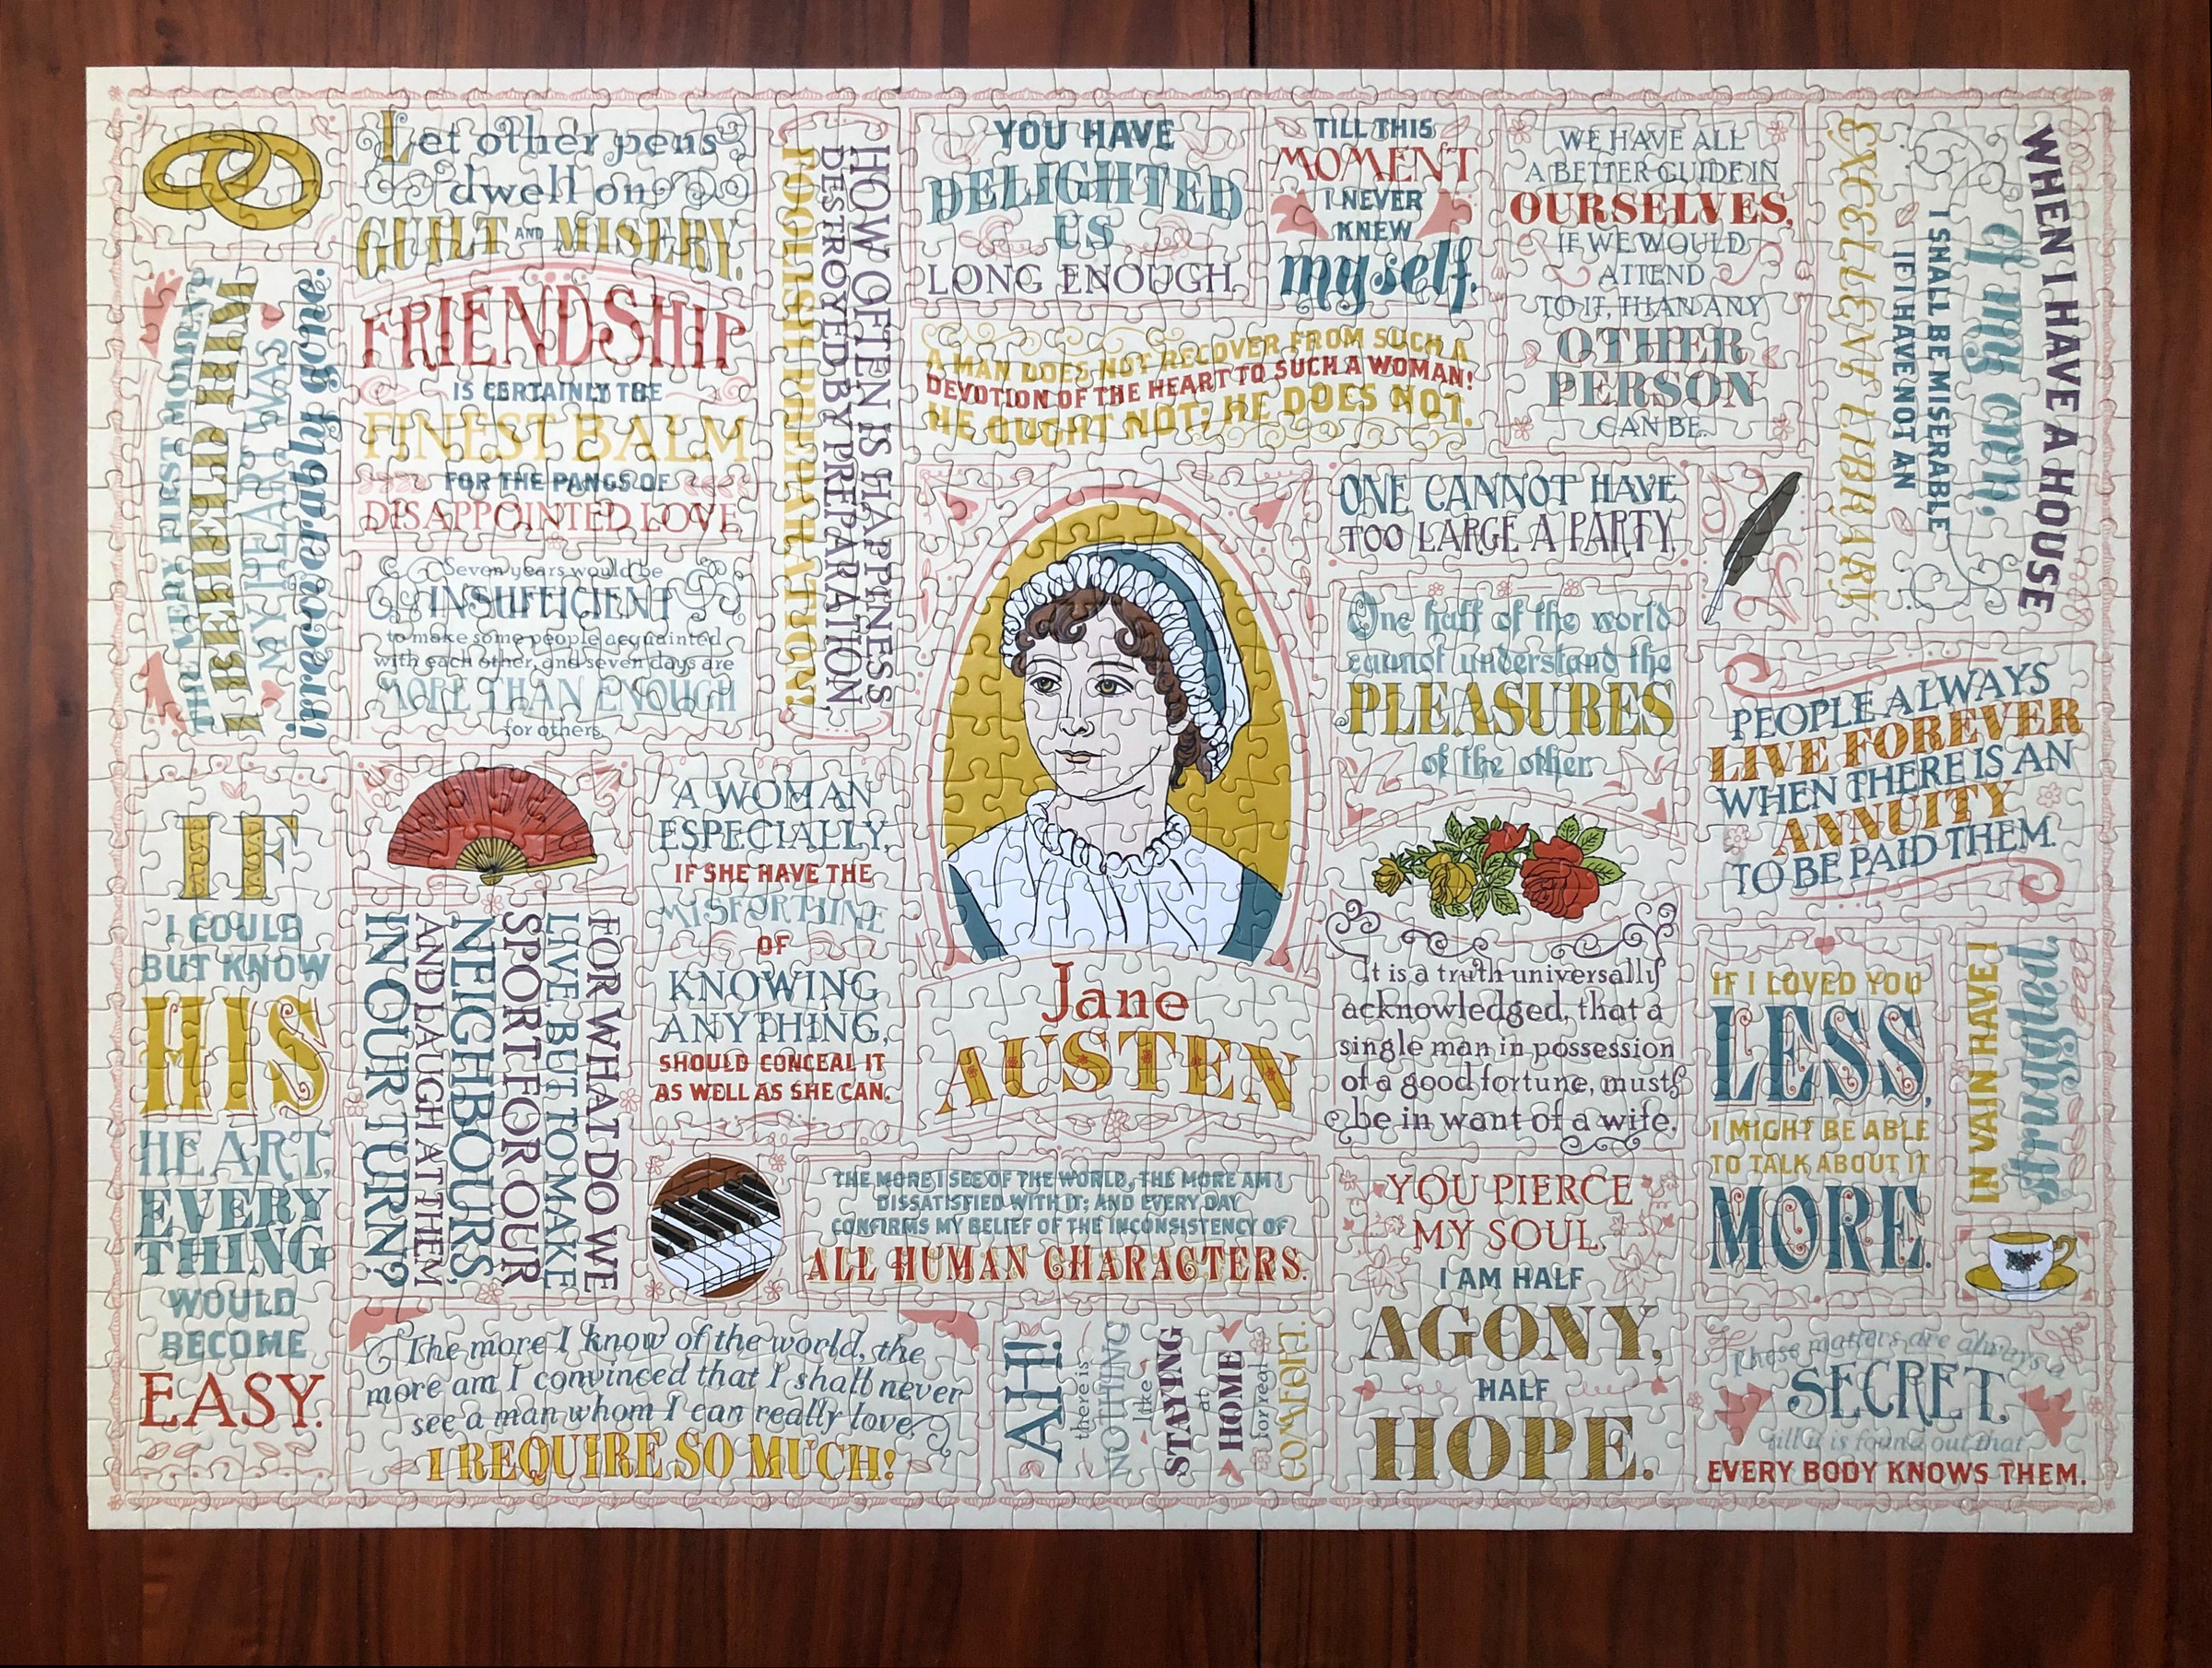 Let other pens
dwell on
GUILT AND MISERY.
FRIENDSHIP
IS CERTAINLY THE
FINEST BALM
FOR THE PANGS OF
DISAPPOINTED LOVE
THE VERY FIRST MOMENT
I BEHELD HIM
MY HEART WAS
irrecoverably gone.
Seven years would be
INSUFFICIENT
to make some people acquainted
with each other, and seven days are
MORE THAN ENOUGH
for others.
HOW OFTEN IS HAPPINESS
DESTROYED BY PREPARATION,
FOOLISH PREPARATION!
YOU HAVE
DELIGHTED
US
LONG ENOUGH.
TILL THIS
MOMENT
I NEVER
KNEW
myself.
WE HAVE ALL
A BETTER GUIDE IN
OURSELVES,
IF WE WOULD
ATTEND
TO IT, THAN ANY
OTHER
PERSON
CAN BE.
WHEN I HAVE A HOUSE
of my own,
I SHALL BE MISERABLE
IF I HAVE NOT AN
EXCELLENT LIBRARY
A MAN DOES NOT RECOVER FROM SUCH A
DEVOTION OF THE HEART TO SUCH A WOMAN!
HE OUGHT NOT; HE DOES NOT.
ONE CANNOT HAVE
TOO LARGE A PARTY.
One half of the world
cannot understand the
PLEASURES
of the other.
PEOPLE ALWAYS
LIVE FOREVER
WHEN THERE IS AN
ANNUITY
TO BE PAID THEM.
IF
I COULD
BUT KNOW
HIS
HEART,
EVERY
THING
WOULD
BECOME
EASY.
FOR WHAT DO WE
LIVE, BUT TO MAKE
SPORT FOR OUR
NEIGHBOURS,
AND LAUGH AT THEM
IN OUR TURN?
A WOMAN
ESPECIALLY,
IF SHE HAVE THE
MISFORTUNE
OF
KNOWING
ANYTHING,
SHOULD CONCEAL IT
AS WELL AS SHE CAN.
Jane
AUSTEN
It is a truth universally
acknowledged, that a
single man in possession
of a good fortune, must
be in want of a wife.
IF I LOVED YOU
LESS,
I MIGHT BE ABLE
TO TALK ABOUT IT
MORE.
IN VAIN HAVE I
struggled.
THE MORE I SEE OF THE WORLD, THE MORE AM I
DISSATISFIED WITH IT; AND EVERY DAY
CONFIRMS MY BELIEF OF THE INCONSISTENCY OF
ALL HUMAN CHARACTERS.
YOU PIERCE
MY SOUL.
I AM HALF
AGONY,
HALF
HOPE.
The more I know of the world, the
more am I convinced that I shall never
see a man whom I can really love.
I REQUIRE SO MUCH!
AH!
there is
NOTHING
like
STAYING
at
HOME
for real
COMFORT.
These matters are always a
SECRET,
till it is found out that
EVERY BODY KNOWS THEM.